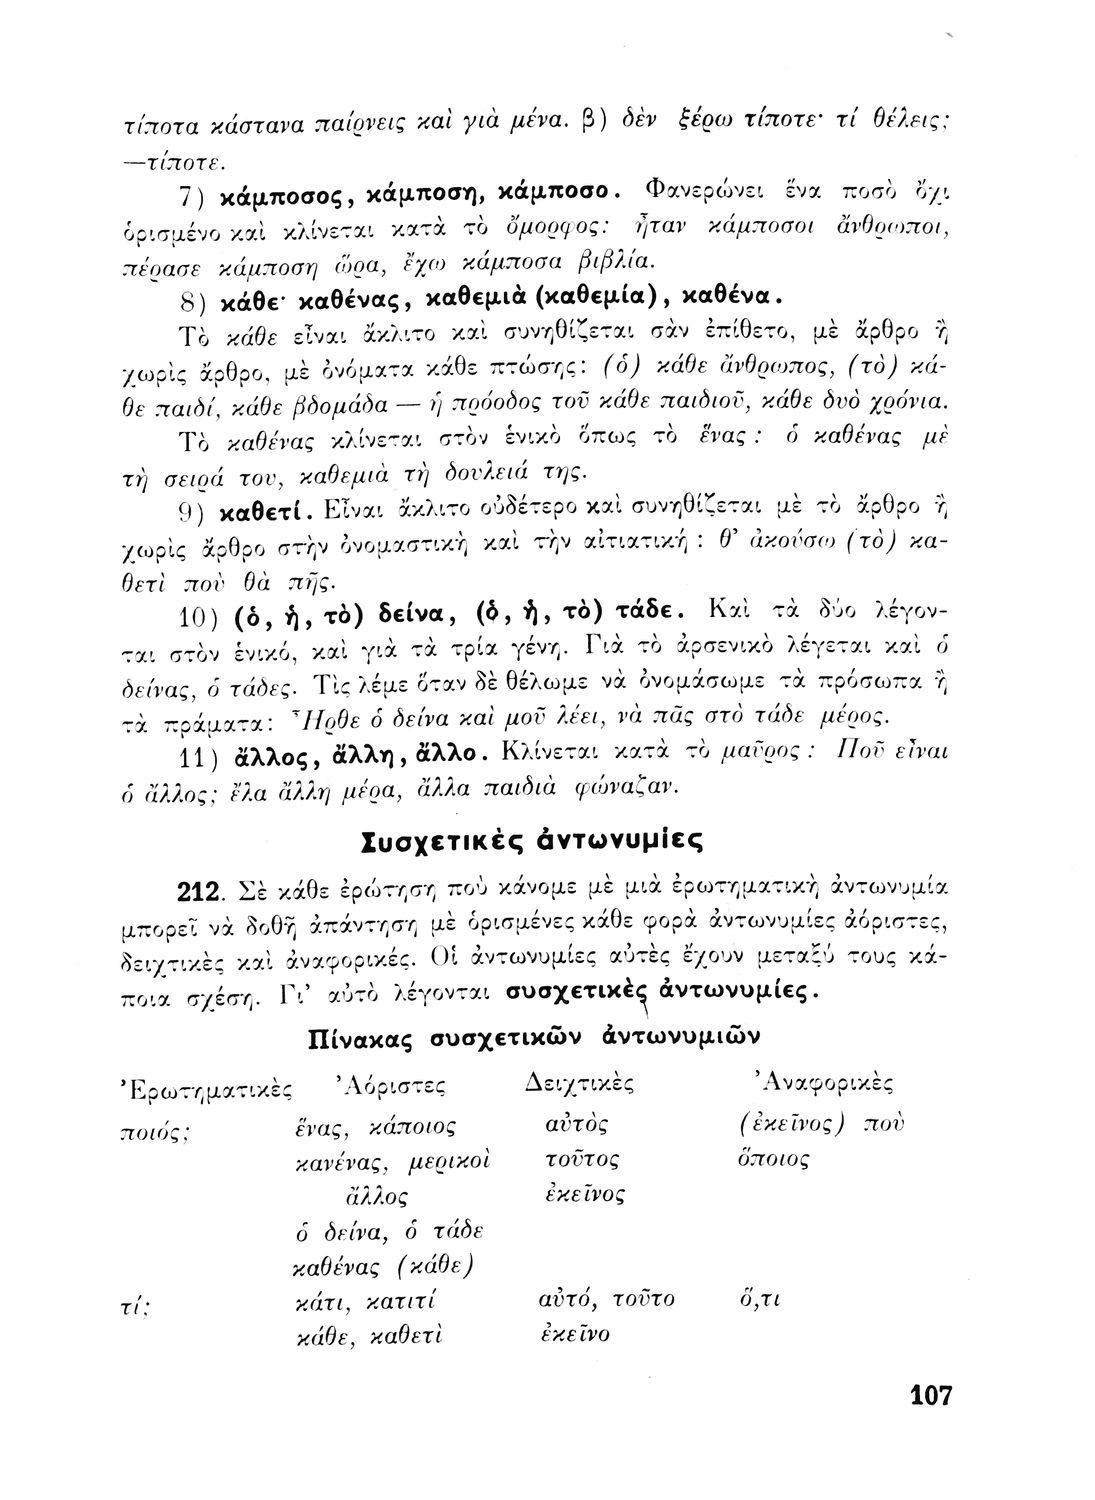 τίποτα κάστανα παίρνεις καὶ γιὰ μένα. β) δὲν ξέρω τίποτε· τί θέλεις;
—τίποτε.
7) κάμποσος, κάμποση, κάμποσο. Φανερώνει ἕνα ποσὸ ὄχι
ὁρισμένο καὶ κλίνεται κατὰ τὸ ὄμορφος: ἦταν κάμποσοι ἄνθρωποι,
πέρασε κάμποση ὥρα, ἔχω κάμποσα βιβλία.
8) κάθε· καθένας, καθεμιὰ (καθεμία), καθένα.
Τὸ κάθε εἶναι ἄκλιτο καὶ συνηθίζεται σὰν ἐπίθετο, μὲ ἄρθρο ἢ
χωρὶς ἄρθρο, μὲ ὀνόματα κάθε πτώσης: (ὁ) κάθε ἄνθρωπος, (τὸ) κά-
θε παιδί, κάθε βδομάδα — ἡ πρόοδος τοῦ κάθε παιδιοῦ, κάθε δυὸ χρόνια.
Τὸ καθένας κλίνεται στὸν ἑνικὸ ὅπως τὸ ἕνας: ὁ καθένας μὲ
τὴ σειρά του, καθεμιὰ τὴ δουλειά της.
9) καθετί. Εἶναι ἄκλιτο οὐδέτερο καὶ συνηθίζεται μὲ τὸ ἄρθρο ἢ
χωρὶς ἄρθρο στὴν ὀνομαστικὴ καὶ τὴν αἰτιατική: θ' ἀκούσω (τὸ) κα-
θετὶ ποὺ θὰ πῆς.
10) (ὁ, ἡ, τὸ) δείνα, (ὁ, ἡ, τὸ) τάδε. Καὶ τὰ δύο λέγον-
ται στὸν ἑνικό, καὶ γιὰ τὰ τρία γένη. Γιὰ τὸ ἀρσενικὸ λέγεται καὶ ὁ
δείνας, ὁ τάδες. Τὶς λέμε ὅταν δὲ θέλωμε νὰ ὀνομάσωμε τὰ πρόσωπα ἢ
τὰ πράματα: Ἦρθε ὁ δείνα καὶ μοῦ λέει, νὰ πᾶς στὸ τάδε μέρος.
11) ἄλλος, ἄλλη, ἄλλο. Κλίνεται κατὰ τὸ μαῦρος: Ποῦ εἶναι
ὁ ἄλλος; ἔλα ἄλλη μέρα, ἄλλα παιδιὰ φώναζαν.
Συσχετικὲς ἀντωνυμίες
212. Σὲ κάθε ἐρώτηση ποὺ κάνομε μὲ μιὰ ἐρωτηματικὴ ἀντωνυμία
μπορεῖ νὰ δοθῆ ἀπάντηση μὲ ὁρισμένες κάθε φορὰ ἀντωνυμίες ἀόριστες,
δειχτικὲς καὶ ἀναφορικές. Οἱ ἀντωνυμίες αὐτὲς ἔχουν μεταξύ τους κά-
ποια σχέση. Γι' αὐτὸ λέγονται συσχετικὲς ἀντωνυμίες.
Πίνακας συσχετικῶν ἀντωνυμιῶν
Ἐρωτηματικὲς Ἀόριστες Δειχτικὲς Ἀναφορικὲς
ποιός; ἕνας, κάποιος αὐτὸς (ἐκεῖνος) ποὺ
κανένας, μερικοὶ τοῦτος ὅποιος
ἄλλος ἐκεῖνος
ὁ δείνα, ὁ τάδε
καθένας (κάθε)
τί; κάτι, κατιτί αὐτό, τοῦτο ὅ,τι
κάθε, καθετὶ ἐκεῖνο
107